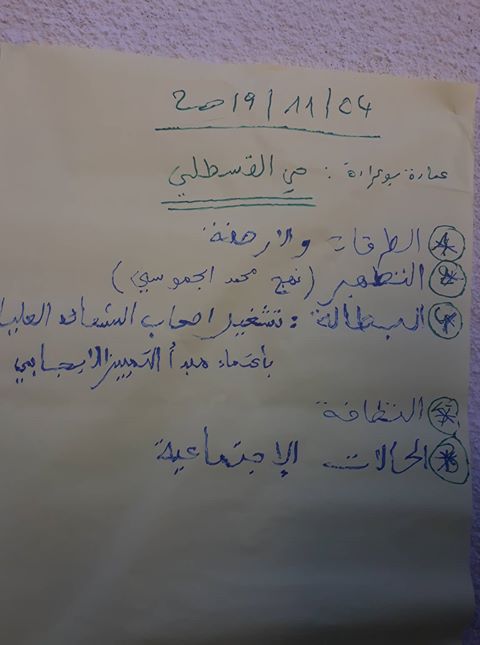 24/11/2019
عمارة بوعرادة : حي القسطلي
الطرقات والأرصفة
التطهير (نهج محمد الجموسي)
البطالة : تشغيل أصحاب الشهائد العليا
باعتماد مبدأ التمييز الإيجابي
النظافة
الحالات الإجتماعية